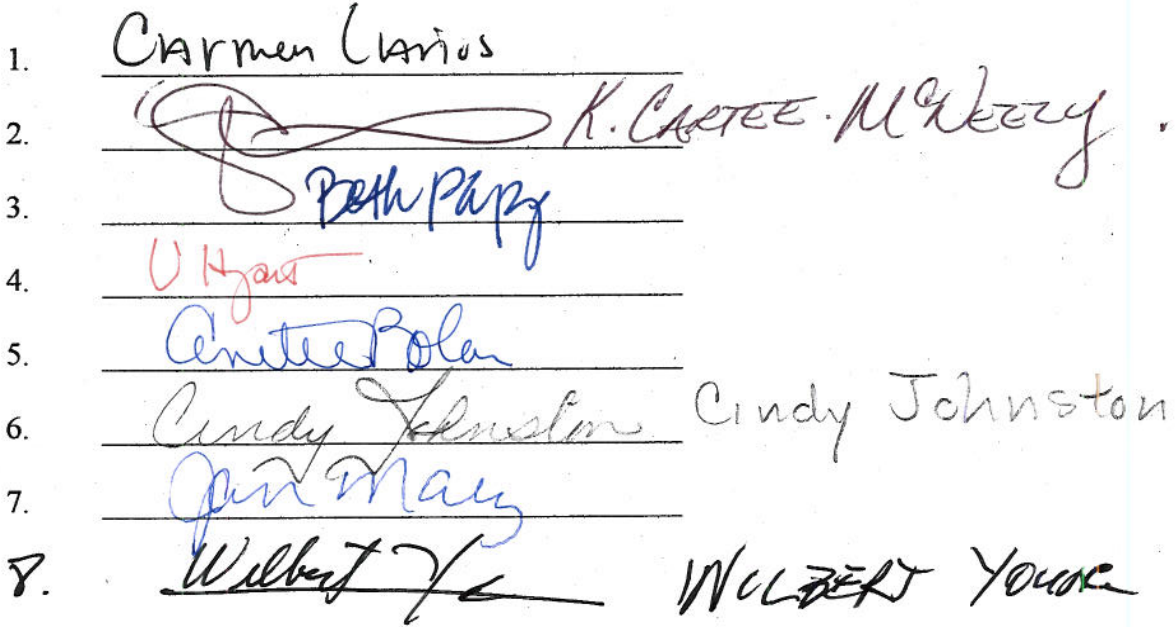 1. Carmen Llanos
2. K. CARTEE-MCNEELY.
3. Beth Papy
4. V Hyatt
5. Anette Bolan
6. Cindy Johnston Cindy Johnston
7. Jan Macy
8. Wilbert WILBERT YOUNG